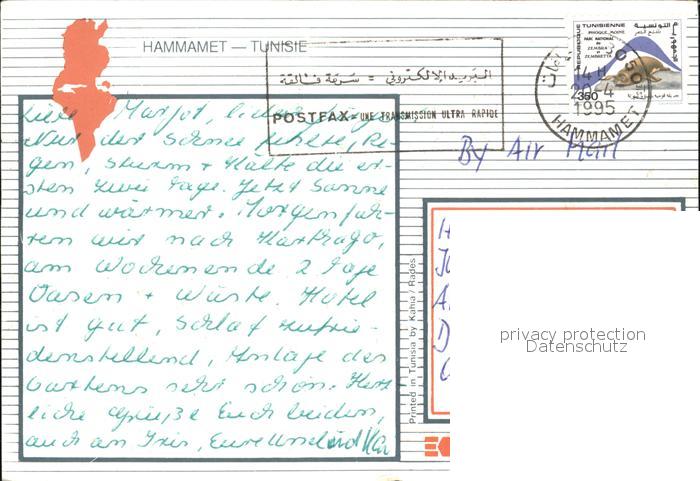 HAMMAMET — TUNISIE
البريد الإلكتروني = سرعة فائقة
POSTFAX = UNE TRANSMISSION ULTRA RAPIDE
REPUBLIQUE TUNISIENNE
PHOQUE MOINE
PARC NATIONAL
DE
ZEMBRA
ET
ZEMBRETTA
350
14 H
20-4
1995
HAMMAMET
By Air Mail
Liebe Margot,
Nur der Sonne fehlte, Re-
gen, Sturm + Kälte die er-
sten zwei Tage. Jetzt Sonne
und wärmer. Morgen fah-
ren wir nach Karthago,
am Wochenende 2 Tage
Oasen + Wüste. Hotel
ist gut, Schlaf zufrie-
denstellend, Anlage des
Gartens sehr schön. Herz-
liche Grüße Euch beiden,
auch an Iris, Eure
Printed in Tunisia by Kahia / Rades
privacy protection
Datenschutz